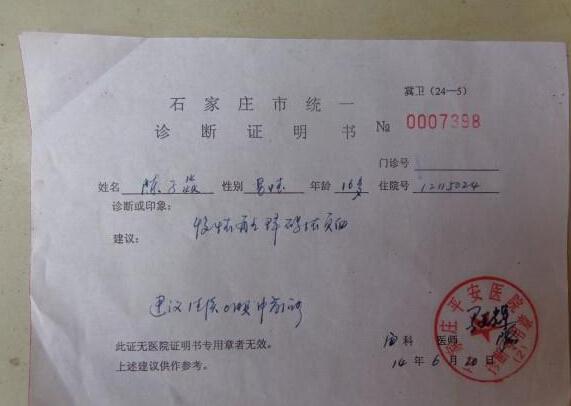 冀卫（24—5）
石家庄市统一
诊断证明书 № 0007398
门诊号
姓名 陈子 性别 男性 年龄 16岁 住院号 12115024
诊断或印象：
再生障碍性贫血
建议：
建议住院
石家庄平安医院
诊断证明专用章
(2)
此证无医院证明书专用章者无效。
科 医师
上述建议供作参考。
14 年 6 月 20 日